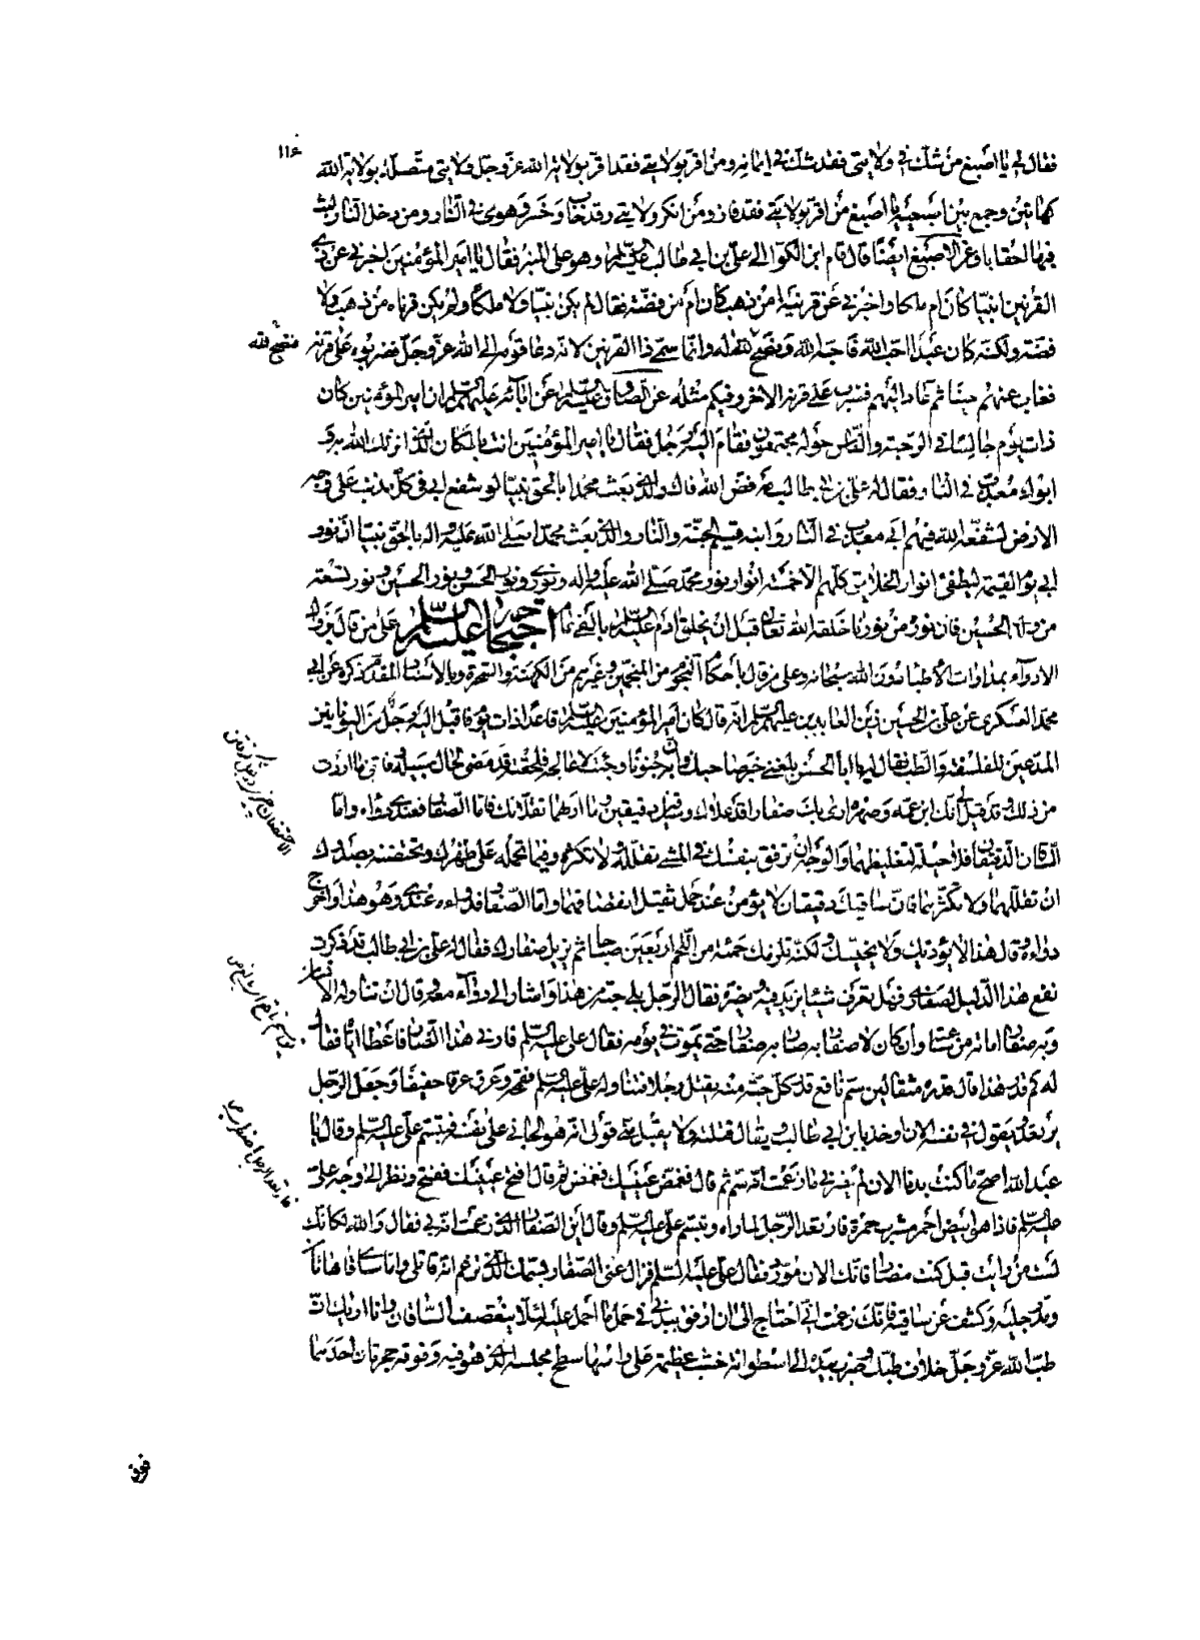 ١١٤
فقال لي يا اصبغ من شك في ولايتي فقد شك في ايمانه ومن اقر بولايتي فقد اقر بولاية الله عز وجل ولايتي متصلة بولاية الله
كهاتين وجمع بين اصبعيه يا اصبغ من اقر بولايتي فقد فاز ومن انكر ولايتي فقد خاب وخسر وهوى في النار ومن دخل النار لبث
فيها احقابا وعن الاصبغ ايضا قال قام ابن الكوا الى علي بن ابي طالب عليه السلم وهو على المنبر فقال يا امير المؤمنين اخبرني عن ذي
القرنين انبيا كان ام ملكا واخبرني عن قرنيه امن ذهب كان أم من فضة فقال لم يكن نبيا ولا ملكا ولم يكن قرناه من ذهب ولا
فضة ولكنه كان عبدا احب الله فاحبه الله ونصح لله وانما سمي ذا القرنين لانه دعا قومه الى الله عز وجل فضربوه على قرنه
فنصح لله
فغاب عنهم حينا ثم عاد اليهم فضرب على قرنه الاخر وفيكم مثله عن الصادق عليه السلم عن ابائه عليهم السلم ان امير المؤمنين كان
ذات يوم جالسا في الرحبة والناس حوله مجتمعون فقام اليه رجل فقال يا امير المؤمنين انت بالمكان الذي انزلك الله به و
ابوك معذب في النار فقال له علي بن ابي طالب مه فض الله فاك والذي بعث محمدا بالحق نبيا لو شفع ابي في كل مذنب على وجه
الارض لشفعه الله فيهم ابي معذب في النار وابنه قسيم الجنة والنار والذي بعث محمدا صلى الله عليه واله بالحق نبيا ان نور
ابي يوم القيمة ليطفئ انوار الخلايق كلهم الا خمسة انوار نور محمد صلى الله عليه واله ونوري ونور الحسن ونور الحسين ونور تسعة
من ولد الحسين فان نوره من نورنا خلقه الله تعالى قبل ان يخلق ادم عليه السلم بالفي عام احتجاجه عليه السلم على من قال بزوال
الادواء بمداوات الاطباء دون الله سبحانه وعلى من قال باحكام النجوم من المنجمين وغيرهم من الكهنة والسحرة وبالاسناد المقدم ذكره عن ابي
محمد العسكري عن علي بن الحسين زين العابدين عليهم السلم انه قال كان امير المؤمنين عليه السلم قاعدا ذات يوم فاقبل اليه رجل من اليونانيين
المدعين للفلسفة والطب فقال له يا ابا الحسن بلغني خبر صاحبك وان به جنونا وجئت لاعالجه فلحقته قد مضى لسبيله وفاتني ما اردت
من ذلك وقد قيل لي انك ابن عمه وصهره وارى بك صفارا قد علاك وساقين دقيقين ما اراهما تقلانك فاما الصفار فعندي دواءه واما
الساقان الدقيقان فلا حيلة لتغليظهما والوجه ان ترفق بنفسك في المشي تقلله ولا تكثره وفيما تحمله على ظهرك وتحتضنه بصدرك
ان تقللهما ولا تكثرهما فان ساقيك دقيقان لا يؤمن عند حمل ثقيل انقصافهما واما الصفار فدواءه عندي وهو هذا واخرج
دواءه وقال هذا لا يؤذيك ولا يخيسك ولكنه تلزمك حمية من اللحم اربعين صباحا ثم يزيل صفارك فقال له علي بن ابي طالب قد ذكرت
نفع هذا الدواء لصفاري فهل تعرف شيئا يزيد فيه ويضره فقال الرجل بلى حبة من هذا واشار الى دواء معه وقال ان تناوله انسان
وبه صفار اماته من ساعته وان كان لا صفار به صار به صفار حتى يموت في يومه فقال علي عليه السلم فارني هذا الضار فاعطاه اياه فقال
له كم قدر هذا قال قدره مثقالين سم ناقع قدر كل حبة منه يقتل رجلا فتناوله علي عليه السلم فقمحه وعرق عرقا خفيفا وجعل الرجل
يرتعد ويقول في نفسه الان اوخذ بابن ابي طالب ويقال قتلته ولا يقبل مني قولي انه هو الجاني على نفسه فتبسم علي عليه السلم وقال يا
عبد الله اصح ما كنت بدنا الان لم يضرني ما زعمت انه سم ثم قال فغمض عينيك فغمض ثم قال افتح عينيك ففتح ونظر الى وجه علي
عليه السلم فاذا هو ابيض احمر مشرب حمرة فارتعد الرجل لما راه وتبسم علي عليه السلم وقال اين الصفار الذي زعمت انه بي فقال والله لكانك
لست من رايت قبل كنت مصفارا فانك الان مورد فقال علي عليه السلم فزال عني الصفار بسمك الذي تزعم انه قاتلي واما ساقاي هاتان
ومد رجليه وكشف عن ساقيه فانك زعمت اني احتاج الى ان ارفق ببدني في حمل ما احمل عليه لئلا ينقصف الساقان وانا اريك ان
طب الله عز وجل خلاف طبك وضرب بيده الى اسطوانة خشب عظيمة على راسها سطح مجلسه الذي هو فيه وفوقه حجرتان احدهما
فوق